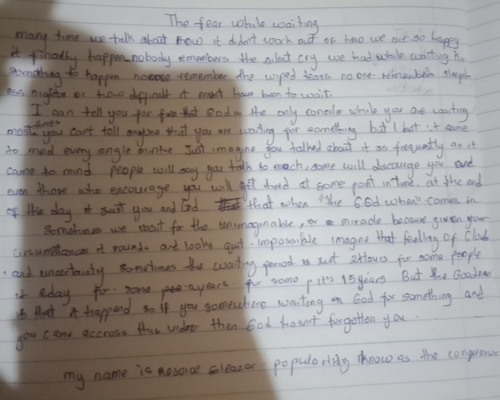 The fear while waiting
many time we talk about how it didn't work out or how we are so happy
it finally happen nobody remembers the silent cry we had while waiting for
something to happen remember the wiped tears no one remembers sleep
less nights or how difficult it must have been to wait.
I can tell you for that God is the only while you are waiting
most times you can't tell anyone that you are waiting for something but I bet it came
to mind every single minute Just imagine you talked about it so frequently as it
came to mind people will say you talk to much, some will discourage you and
even those who encourage you will get tired at some point in time. at the end
of the day it just you and God that when "the GOD when" comes in
Sometimes we wait for the unimaginable, or a miracle because given your
circumstances it sounds and looks quit impossible imagine that feeling of
and uncertainty Sometimes the waiting period is just 24hours for some people
it 8day for some years for some, it's 15years But the
is that it happend so if you somewhere waiting on God for something and
you came accross this video then God hasn't forgotten you.
my name is popularity know as the